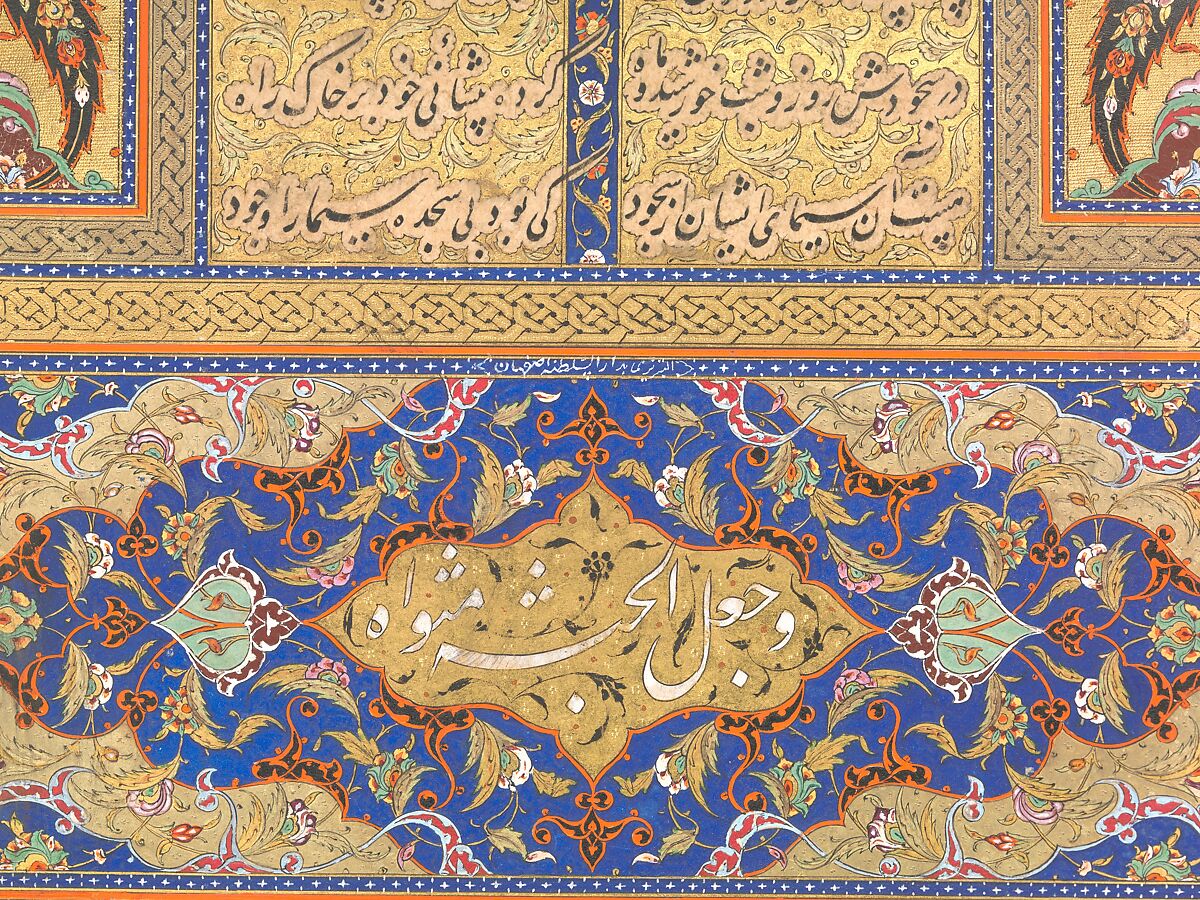 در سجودش روز و شب خورشید و ماه کرده پیشانی خود بر خاک راه
سیمای ایشان از سجود کی بود بی سجده سیما را وجود
بدار السلطنه اصفهان
و جعل الجنة مثواه